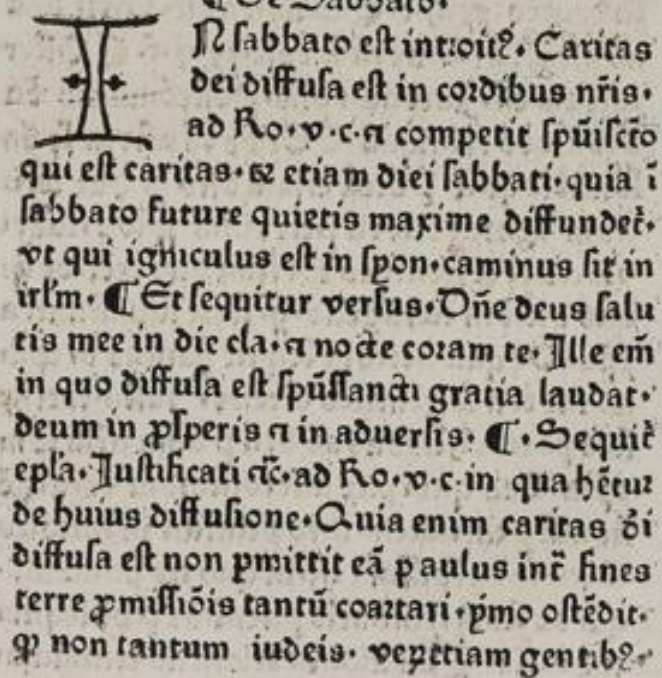 ¶ De Sabbato.
IN sabbato est introitꝰ. Caritas
dei diffusa est in cordibus nr̄is.
ad Ro. v. c. ⁊ competit spūisct̄o
qui est caritas. ⁊ etiam diei sabbati. quia ī
sabbato future quietis maxime diffundet̉.
vt qui igniculus est in syon. caminus sit in
irlꝫm. ¶ Et sequitur versus. Dn̄e deus salu
tis mee in die cla. ⁊ nocte coram te. Ille em̄
in quo diffusa est spūssancti gratia laudat.
deum in ꝓsperis ⁊ in aduersis. ¶. Sequit̉
epl̄a. Justificati ⁊c̄. ad Ro. v. c. in qua hētur
de huius diffusione. Quia enim caritas d̄i
diffusa est non ꝑmittit eā paulus int̄ fines
terre ꝓmissiōis tantū coartari. ymo ostēdit.
ꝙ non tantum iudeis. veꝝetiam gentibꝰ.